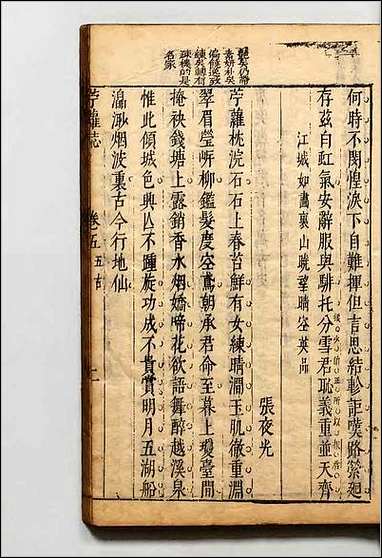 何時不閔惶淚下自難揮但言思結軫詎嘆路縈廻
存茲白虹氣安辭服與騑托分雪君恥義重並天齊
江城如畫裏山曉望晴空英品
張夜光
苧蘿枕浣石石上春苔鮮有女練晴淵玉肌徹重淵
翠眉瑩哳柳鑑髮慶空鳶朝承君命至暮上瓊臺間
掩袂錢塘上露銷香水烟嬌啼花欲語舞醉越溪泉
惟此傾城色興亾不踵旋功成不貴賞明月五湖船
渹渺烟波裏古今行地仙
苧蘿誌
卷五
五古
上
名家